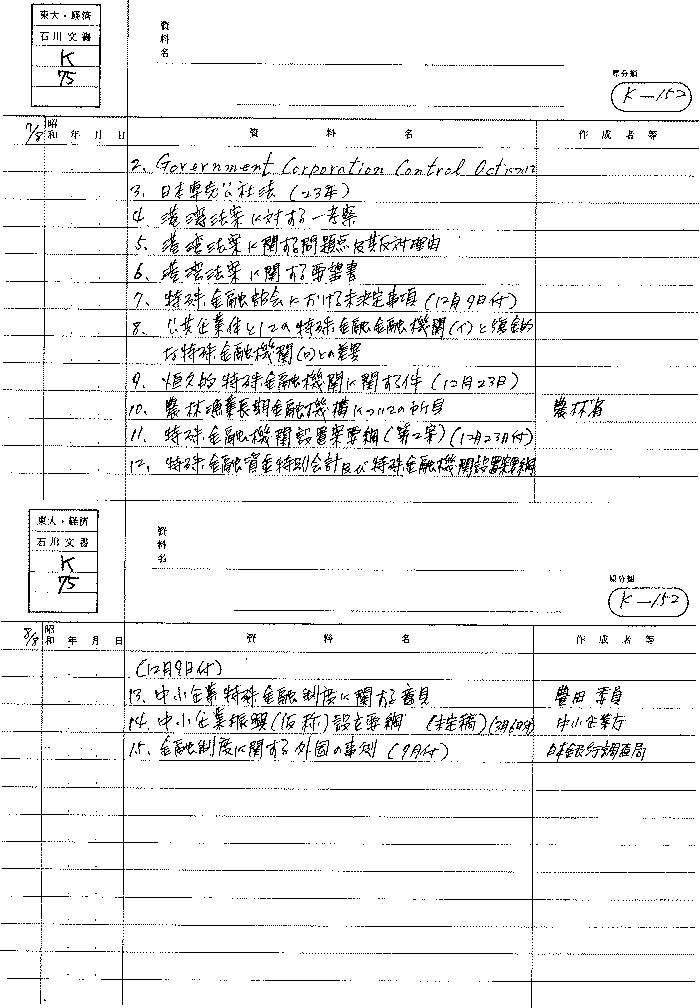 東大・経済
石川文書
K
75
資料名
原分類
K-152
7/8 昭和 年 月 日 資料名 作成者等
2. Government Corporation Control Act
3. 日本専売公社法 (23年)
4. 港湾法案に対する一考察
5. 港湾法案に関する問題点及其反対理由
6. 港湾法案に関する要望書
7. 特殊金融部会における未決定事項 (12月9日付)
8. 公共企業体としての特殊金融金融機関(イ)と復金的
な特殊金融機関(ロ)との差異
9. 恒久的特殊金融機関に関する件 (12月23日)
10. 農林漁業長期金融機構についての所見 農林省
11. 特殊金融機関設置案要綱 (第2案) (12月23日付)
12. 特殊金融資金特別会計及び特殊金融機関設置案要綱
東大・経済
石川文書
K
75
資料名
原分類
K-152
8/8 昭和 年 月 日 資料名 作成者等
(12月9日付)
13. 中小企業特殊金融制度に関する意見 豊田委員
14. 中小企業振興(仮称)設立要綱 (未定稿) 中小企業庁
15. 金融制度に関する外国の事例 (9月付) 日本銀行調査局